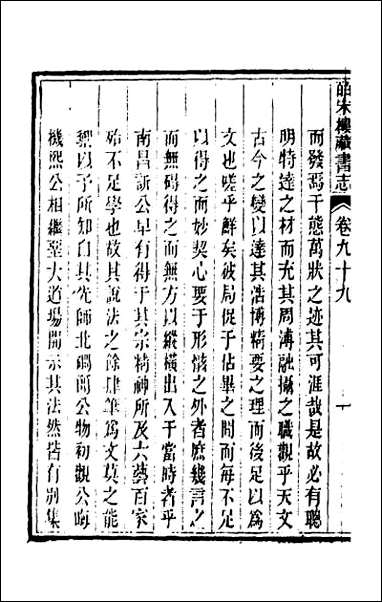 皕宋樓藏書志 卷九十九 一
而發焉千態萬狀之迹其可涯哉是故必有聰
明特達之材而充其周溥融攝之職觀乎天文
古今之變以達其浩博精要之理而後足以為
文也嗟乎鮮矣破局促于佔畢之間而每不足
以得之而妙契心要于形骸之外者庶幾言之
而無碍得之而無方以縱橫出入于當時者乎
南昌訢公早有得于其宗精神所及六藝百家
殆不足學也故其說法之餘肆筆為文莫之能
禦以予所知自其先師北磵簡公物初觀公晦
機熙公相繼坐大道場開示其法然皆有別集